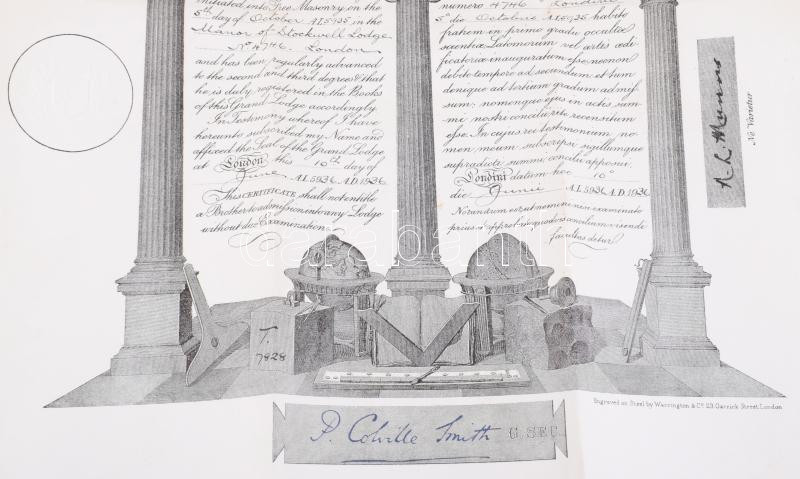 initiated into Free Masonry on the
5th day of October A.L.5935 in the
Manor of Stockwell Lodge
No 4746. London
and has been regularly advanced
to the second and third degrees & that
he is duly registered in the Books
of this Grand Lodge accordingly.
In Testimony whereof I have
hereunto subscribed my Name and
affixed the Seal of the Grand Lodge
at London this 10th day of
June A.L.5936 A.D.1936
This CERTIFICATE shall not entitle
a Brother to admission into any Lodge
without due Examination.
numero 4746 Londini
5o die Octobris A.L.5935 habito
fratrem in primo gradu occultæ
scientiæ Latomorum vel artis ædi-
ficatoriæ inauguratum esse necnon
debito tempore ad secundum et tum
denique ad tertium gradum admis-
sum; nomenque ejus in actis sum-
mi nostri concilii rite recensitum
esse. In cujus rei testimonium no-
men meum subscripsi sigillumque
supradicti summi concilii apposui.
Londini datum hec 10o
die Junii A.L.5936 A.D.1936
Notandum est ut nemini nisi examinato
prius & approbato quodvis concilium visende
facultas detur.
Ne Varietur
T.
7828
P. Colville Smith G. SEC.
Engraved on Steel by Warrington & Co. 23, Garrick Street, London
darabanth